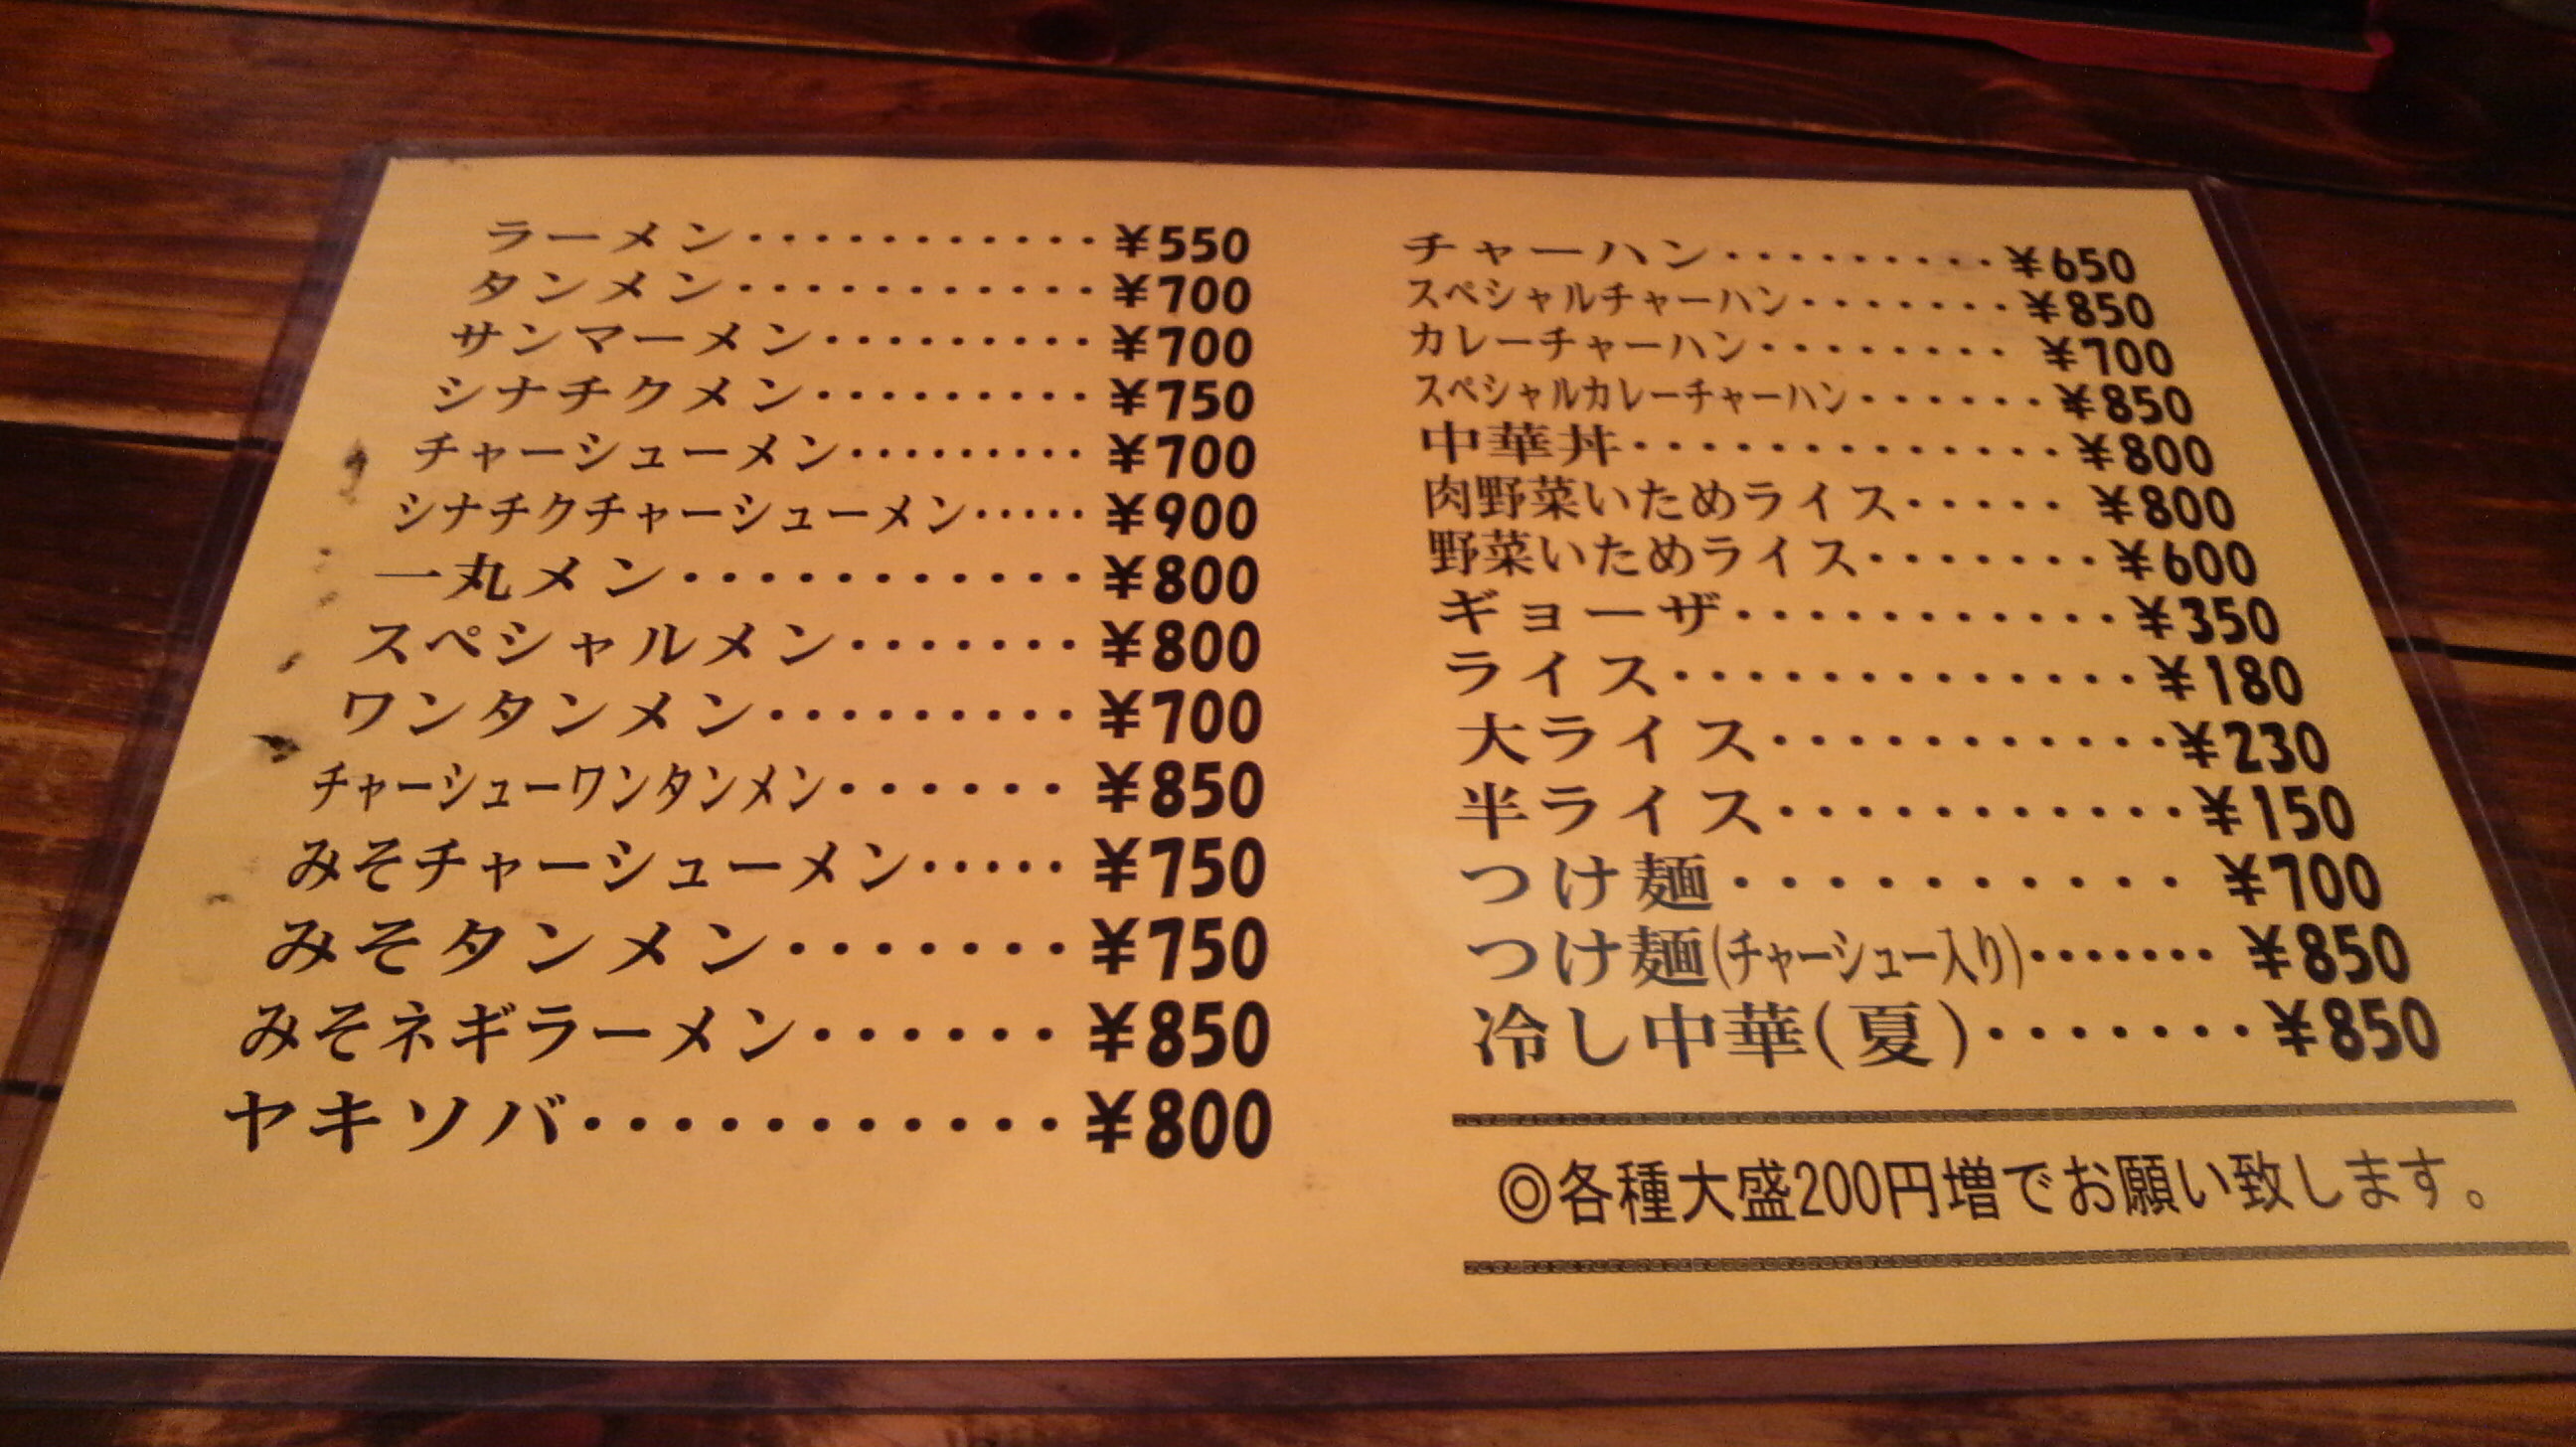 ラーメン・・・・・・・・・・・・¥550
タンメン・・・・・・・・・・・・¥700
サンマーメン・・・・・・・・・¥700
シナチクメン・・・・・・・・・¥750
チャーシューメン・・・・・・・・・¥700
シナチクチャーシューメン・・・・・¥900
一丸メン・・・・・・・・・・・・¥800
スペシャルメン・・・・・・・¥800
ワンタンメン・・・・・・・・・¥700
チャーシューワンタンメン・・・・・・¥850
みそチャーシューメン・・・・・¥750
みそタンメン・・・・・・・¥750
みそネギラーメン・・・・・・¥850
ヤキソバ・・・・・・・・・・・・¥800
チャーハン・・・・・・・・・¥650
スペシャルチャーハン・・・・・・・¥850
カレーチャーハン・・・・・・・・¥700
スペシャルカレーチャーハン・・・・・・¥850
中華丼・・・・・・・・・・・・・¥800
肉野菜いためライス・・・・・¥800
野菜いためライス・・・・・・・¥600
ギョーザ・・・・・・・・・・・¥350
ライス・・・・・・・・・・・・・¥180
大ライス・・・・・・・・・・・・¥230
半ライス・・・・・・・・・・・・¥150
つけ麺・・・・・・・・・・・¥700
つけ麺(チャーシュー入り)・・・・・・・¥850
冷し中華(夏)・・・・・・・¥850
◎各種大盛200円増でお願い致します。